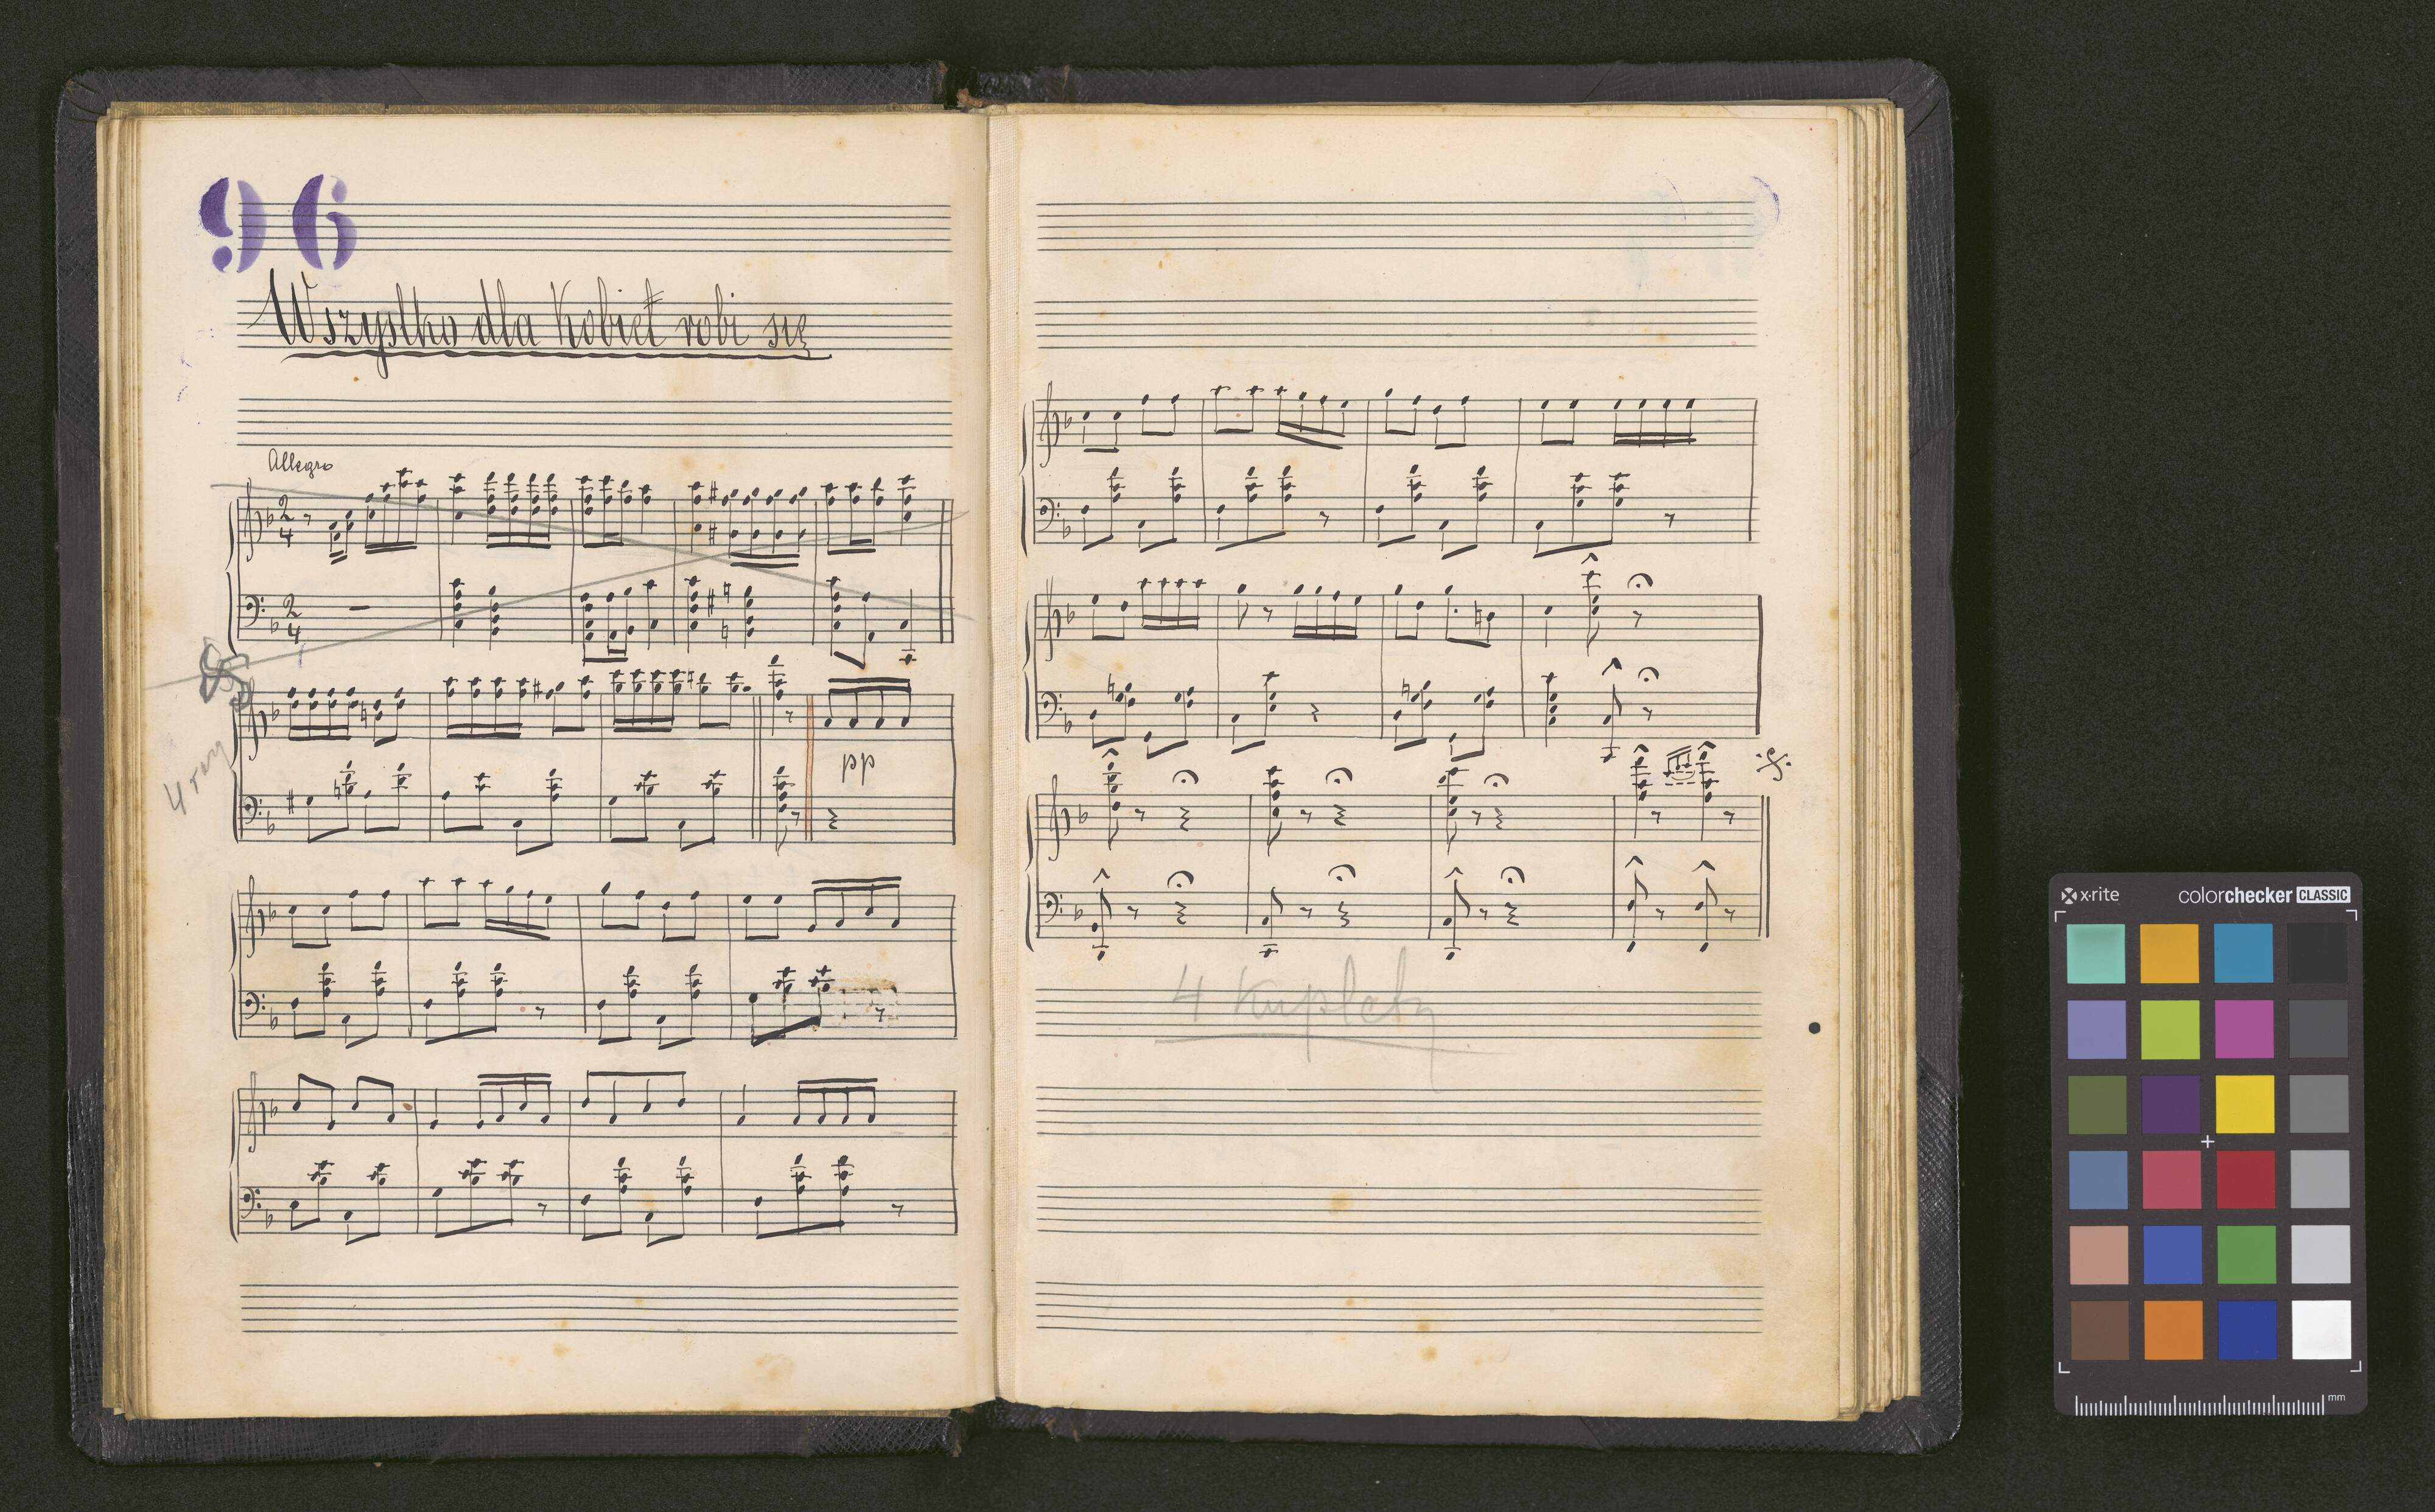 96
Wszystko dla Kobiet robi się
Allegro
2
4
2
4
4 razy
pp
4 Kuplety
x-rite colorchecker CLASSIC
mm